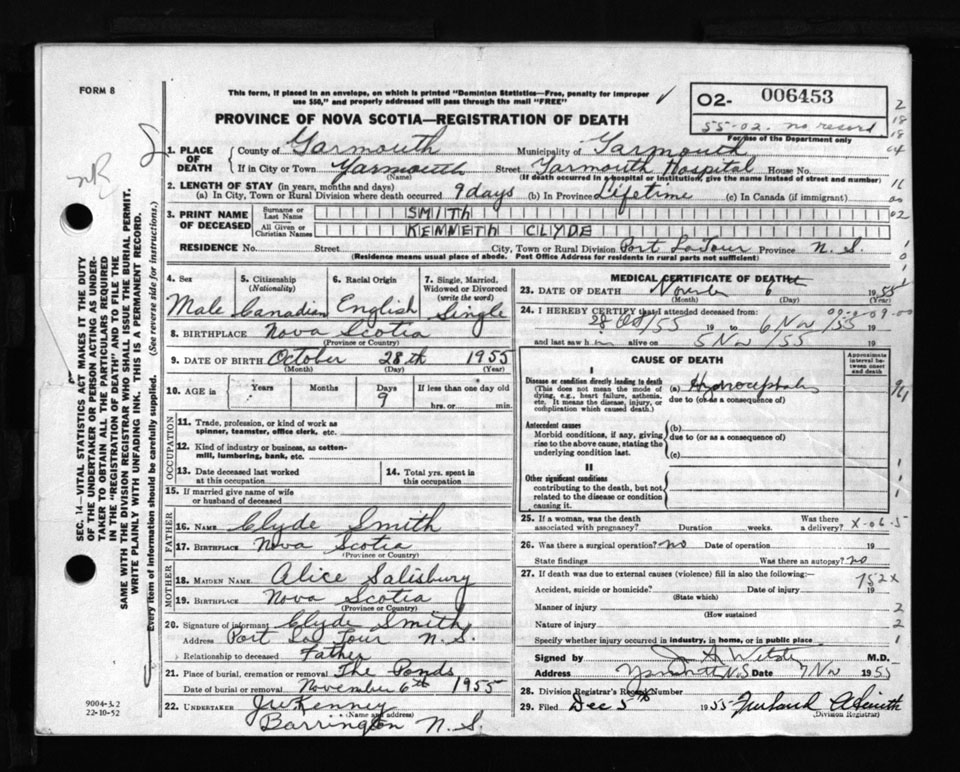 FORM 8
This form, if placed in an envelope, on which is printed "Dominion Statistics—Free, penalty for improper
use $50," and properly addressed will pass through the mail "FREE"
02- 006453
55-02. no record
For use of the Department only
PROVINCE OF NOVA SCOTIA—REGISTRATION OF DEATH
nR
1. PLACE OF DEATH
County of Yarmouth Municipality of Yarmouth
If in City or Town Yarmouth Street Yarmouth Hospital House No.
(Name) (If death occurred in a hospital or institution, give the name instead of street and number)
2. LENGTH OF STAY (in years, months and days)
(a) In City, Town or Rural Division where death occurred 9 days (b) In Province Lifetime (c) In Canada (if immigrant)
3. PRINT NAME OF DECEASED
Surname or Last Name SMITH
All Given or Christian Names KENNETH CLYDE
RESIDENCE No. Street City, Town or Rural Division Port LaTour Province N. S.
(Residence means usual place of abode. Post Office Address for residents in rural parts not sufficient)
4. Sex Male
5. Citizenship (Nationality) Canadian
6. Racial Origin English
7. Single, Married, Widowed or Divorced (write the word) Single
8. BIRTHPLACE Nova Scotia
(Province or Country)
9. DATE OF BIRTH October 28th 1955
(Month) (Day) (Year)
10. AGE in Years Months Days 9 If less than one day old
hrs. or min.
OCCUPATION
11. Trade, profession, or kind of work as
spinner, teamster, office clerk, etc.
12. Kind of industry or business, as cotton-
mill, lumbering, bank, etc.
13. Date deceased last worked
at this occupation
14. Total yrs. spent in
this occupation
15. If married give name of wife
or husband of deceased
FATHER
16. NAME Clyde Smith
17. BIRTHPLACE Nova Scotia
(Province or Country)
MOTHER
18. MAIDEN NAME. Alice Salisbury
19. BIRTHPLACE Nova Scotia
(Province or Country)
20. Signature of informant Clyde Smith
Address Port La Tour N. S.
Relationship to deceased Father
21. Place of burial, cremation or removal The Ponds
Date of burial or removal November 6th 1955
22. UNDERTAKER J W Kenney
(Name and address)
Barrington N. S.
MEDICAL CERTIFICATE OF DEATH
23. DATE OF DEATH 6 1955
(Month) (Day) (Year)
24. I HEREBY CERTIFY that I attended deceased from:
28 Oct/55 19 to 6 Nov/55 19
and last saw him alive on 5 Nov/55 19
CAUSE OF DEATH
Approximate interval between onset and death
I
Disease or condition directly leading to death
(This does not mean the mode of
dying, e.g., heart failure, asthenia,
etc. It means the disease, injury, or
complication which caused death.)
(a) Hydrocephalus
due to (or as a consequence of)
Antecedent causes
Morbid conditions, if any, giving
rise to the above cause, stating the
underlying condition last.
(b)
due to (or as a consequence of)
(c)
II
Other significant conditions
contributing to the death, but not
related to the disease or condition
causing it.
25. If a woman, was the death
associated with pregnancy? Duration weeks. Was there a delivery? X-06-5
26. Was there a surgical operation? no Date of operation 19
State findings Was there an autopsy? no
27. If death was due to external causes (violence) fill in also the following:—
752x
Accident, suicide or homicide? Date of injury 19
(State which)
Manner of injury
(How sustained)
Nature of injury
Specify whether injury occurred in industry, in home, or in public place
Signed by M.D.
Address Yarmouth N.S Date 7 Nov 1955
28. Division Registrar's Record Number
29. Filed Dec 5th 1955 Smith
(Division Registrar)
SEC. 14—VITAL STATISTICS ACT MAKES IT THE DUTY
OF THE UNDERTAKER OR PERSON ACTING AS UNDER-
TAKER TO OBTAIN ALL THE PARTICULARS REQUIRED
IN THE "REGISTRATION OF DEATH" AND TO FILE THE
SAME WITH THE DIVISION REGISTRAR WHO SHALL ISSUE THE BURIAL PERMIT.
WRITE PLAINLY WITH UNFADING INK. THIS IS A PERMANENT RECORD.
Every item of information should be carefully supplied. (See reverse side for instructions.)
9004-3.2
22-10-52